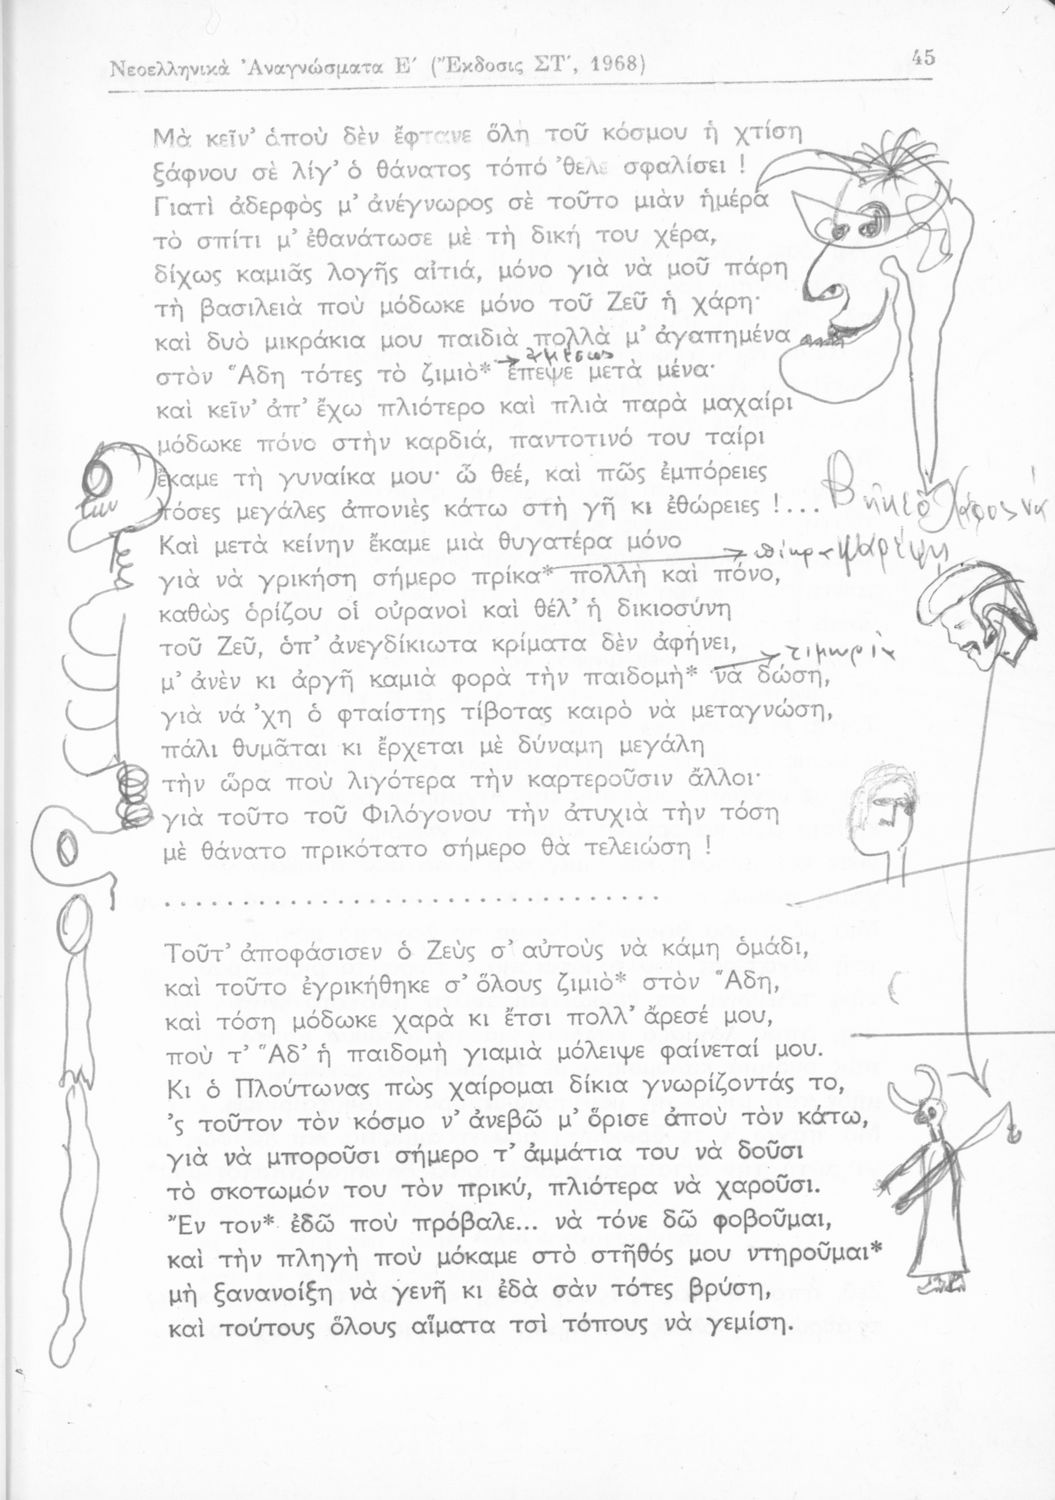 Νεοελληνικὰ Ἀναγνώσματα Ε΄ (Ἔκδοσις ΣΤ΄, 1968)
45
Μὰ κεῖν’ ἁποὺ δὲν ἔφτανε ὅλη τοῦ κόσμου ἡ χτίση
ξάφνου σὲ λίγ’ ὁ θάνατος τόπό ’θελε σφαλίσει !
Γιατὶ ἀδερφὸς μ’ ἀνέγνωρος σὲ τοῦτο μιὰν ἡμέρα
τὸ σπίτι μ’ ἐθανάτωσε μὲ τὴ δική του χέρα,
δίχως καμιᾶς λογῆς αἰτιά, μόνο γιὰ νὰ μοῦ πάρη
τὴ βασιλειὰ ποὺ μόδωκε μόνο τοῦ Ζεῦ ἡ χάρη·
καὶ δυὸ μικράκια μου παιδιὰ πολλὰ μ’ ἀγαπημένα
ἀμέσως
στὸν Ἅδη τότες τὸ ζιμιὸ* ἔπεψε μετὰ μένα·
καὶ κεῖν’ ἀπ’ ἔχω πλιότερο καὶ πλιὰ παρὰ μαχαίρι
μόδωκε πόνο στὴν καρδιά, παντοτινό του ταίρι
ἔκαμε τὴ γυναίκα μου· ὦ θεέ, καὶ πῶς ἐμπόρειες
τόσες μεγάλες ἀπονιὲς κάτω στὴ γῆ κι ἐθώρειες !...
Καὶ μετὰ κείνην ἔκαμε μιὰ θυγατέρα μόνο
πίκρα
γιὰ νὰ γρικήση σήμερο πρίκα* πολλὴ καὶ πόνο,
καθὼς ὁρίζου οἱ οὐρανοὶ καὶ θέλ’ ἡ δικιοσύνη
τοῦ Ζεῦ, ὁπ’ ἀνεγδίκιωτα κρίματα δὲν ἀφήνει,
τιμωρία
μ’ ἀνὲν κι ἀργῆ καμιὰ φορὰ τὴν παιδομὴ* νὰ δώση,
γιὰ νά ’χη ὁ φταίστης τίβοτας καιρὸ νὰ μεταγνώση,
πάλι θυμᾶται κι ἔρχεται μὲ δύναμη μεγάλη
τὴν ὥρα ποὺ λιγότερα τὴν καρτεροῦσιν ἄλλοι·
γιὰ τοῦτο τοῦ Φιλόγονου τὴν ἀτυχιὰ τὴν τόση
μὲ θάνατο πρικότατο σήμερο θὰ τελειώση !
. . . . . . . . . . . . . . . . . . . . . . . . . . . . . . . .
Τοῦτ’ ἀποφάσισεν ὁ Ζεὺς σ’ αὐτοὺς νὰ κάμη ὁμάδι,
καὶ τοῦτο ἐγρικήθηκε σ’ ὅλους ζιμιὸ* στὸν Ἅδη,
καὶ τόση μόδωκε χαρὰ κι ἔτσι πολλ’ ἄρεσέ μου,
ποὺ τ’ Ἅδ’ ἡ παιδομὴ γιαμιὰ μόλειψε φαίνεταί μου.
Κι ὁ Πλούτωνας πὼς χαίρομαι δίκια γνωρίζοντάς το,
’ς τοῦτον τὸν κόσμο ν’ ἀνεβῶ μ’ ὅρισε ἀποὺ τὸν κάτω,
γιὰ νὰ μποροῦσι σήμερο τ’ ἀμμάτια του νὰ δοῦσι
τὸ σκοτωμόν του τὸν πρικύ, πλιότερα νὰ χαροῦσι.
Ἔν τον* ἐδῶ ποὺ πρόβαλε... νὰ τόνε δῶ φοβοῦμαι,
καὶ τὴν πληγὴ ποὺ μόκαμε στὸ στῆθός μου ντηροῦμαι*
μὴ ξανανοίξη νὰ γενῆ κι ἐδὰ σὰν τότες βρύση,
καὶ τούτους ὅλους αἵματα τσὶ τόπους νὰ γεμίση.